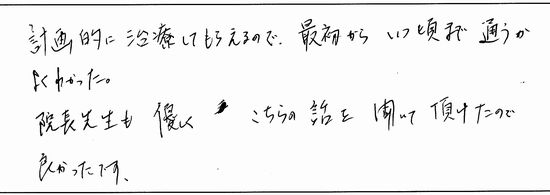 計画的に治療してもらえるので、最初からいつ頃まで通うか
よくわかった。
院長先生も優しく こちらの話を聞いて頂けたので
良かったです。